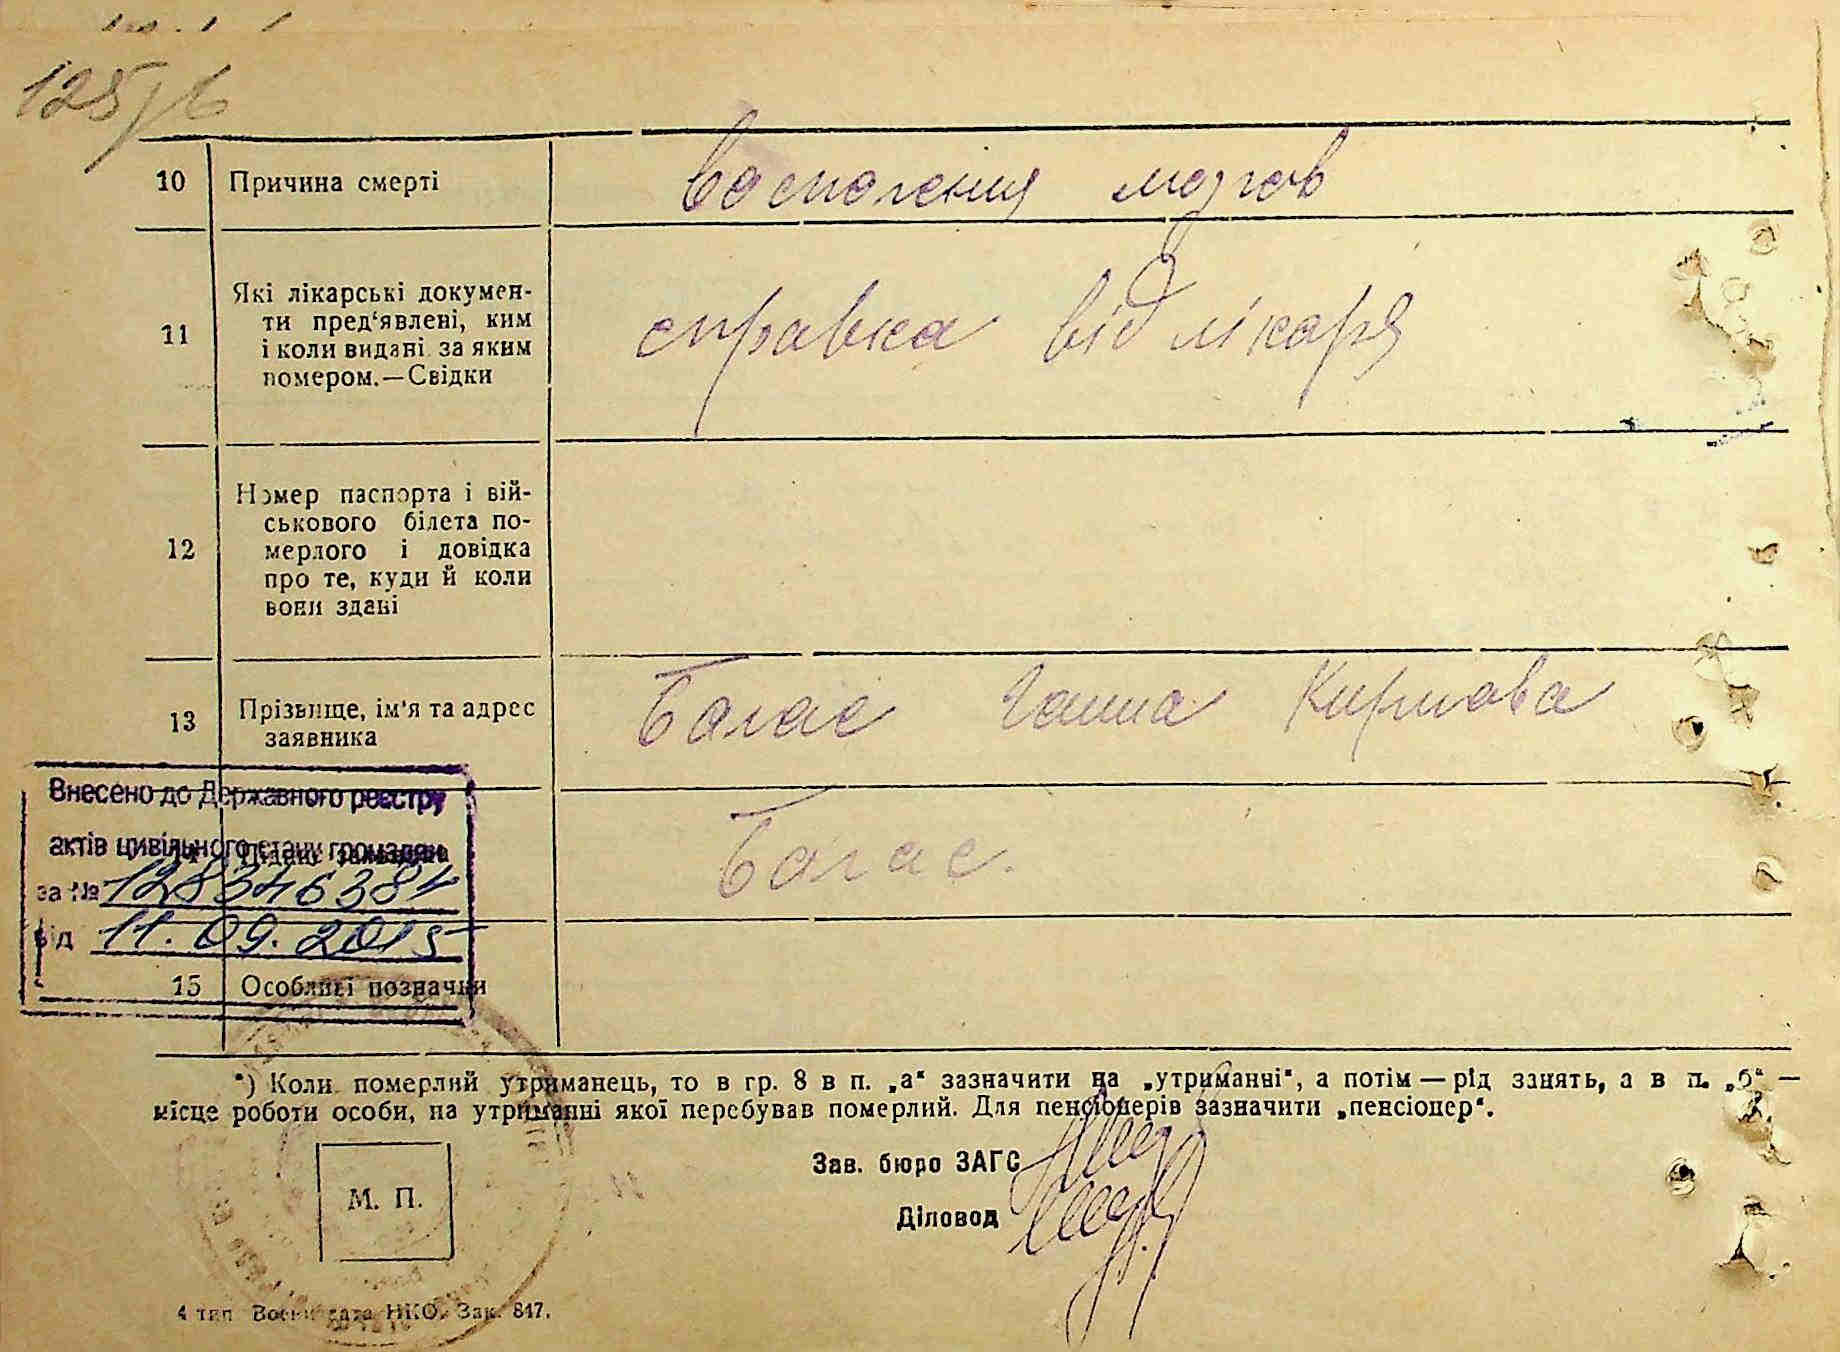 125/6
10 Причина смерті воспоління мозгов
11 Які лікарські докумен-
ти пред'явлені, ким
і коли видані за яким
номером.—Свідки
справка від лікаря
12 Номер паспорта і вій-
ськового білета по-
мерлого і довідка
про те, куди й коли
вони здані
13 Прізвище, ім'я та адрес
заявника
Балас Ганна
Внесено до Державного реєстру
актів цивільного стану громадян
Підпис заявника Балас.
за № 128346384
від 11.09.2015
15 Особливі позначки
*) Коли померлий утриманець, то в гр. 8 в п. „а“ зазначити на „утриманні“, а потім — рід занять, а в п. „б“ —
місце роботи особи, на утриманні якої перебував померлий. Для пенсіонерів зазначити „пенсіонер“.
Зав. бюро ЗАГС
М. П.
Діловод
4 тип. НКО. Зак. 847.